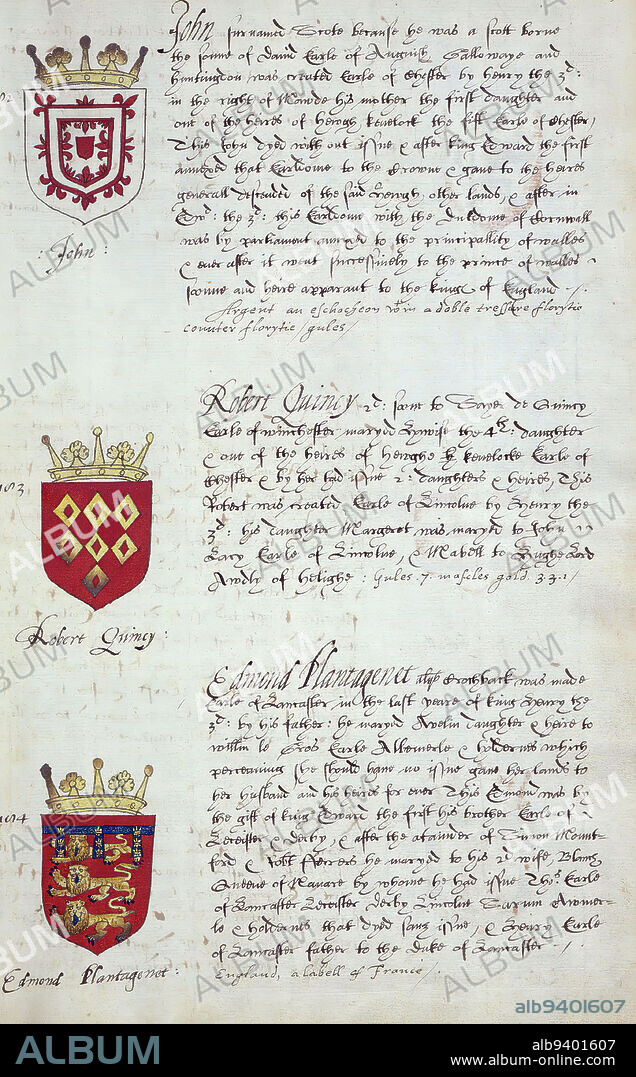 John surnamed Scote because he was a scott borne
the sonne of David Earle of Anguish, Gallowaye and
Huntingdon was created Earle of Chester by Henry the 3d:
in the right of Mawde his mother the first daughter and
one of the heires of Herogh kevelock the fift Earle of Chester,
This John dyed with out issue & after king Edward the first
annexed that Earldome to the Crowne & gave to the heires
generall descended of the said Hewgh other lands, & after in
the 3d: this Earldome with the Dukdome of Cornwall
was by parliament annexed to the principallity of walles
& ever after it went successively to the prince of walles
sonne and heire apparant to the kinge of England
Argent an eschocheon within a doble tressure florytie
counter florytie gules
John:
Robert Quincy 2d: sonne to Sayer de Quincy
Earle of winchester maryed the 4th: daughter
& one of the heires of kevelocke Earle of
Chester & by her had issue 2: daughters & heires, This
Robert was created Earle of Lincolne by Henry the
3d: his daughter Margeret was maryed to John
Lacy Earle of Lincolne, & Mabell to Hughe Lord
Awdly of Helighe: Gules .7. mascles gold .3.3.1
183
Robert Quincy:
Edmond Plantagenet Crochback was made
Earle of Lancaster in the last yeare of king Henry the
3d: by his father: he maryed Avelin daughter & heire to
willm le Gros Earle Albemerle & holdernes which
perceaving she should have no issue gave her lands to
her husband and his heires for ever This Edmond was by
the gift of king Edward the first his brother Earle of
Leicester & derby, & after the atainder of Simon Mount-
ford & Ferrers he maryed to his 2d wife, Blanch
Queene of Navare by whome he had issue Tho. Earle
of Lancaster Leicester derby Lincolne Sarum
& holdernes that dyed sans issue, & Henry Earle
of Lancaster father to the duke of Lancaster
England, a labell of France
184
Edmond Plantagenet:
alb9401607
ALBUM
alb9401607
www.album-online.com